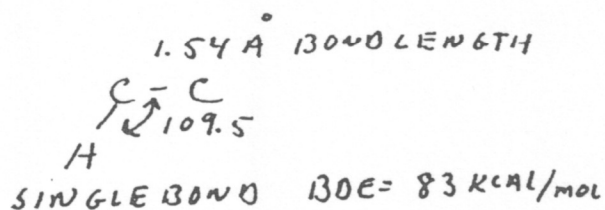 1.54 Å BOND LENGTH
C - C
109.5
H
SINGLE BOND BDE = 83 KCAL/MOL